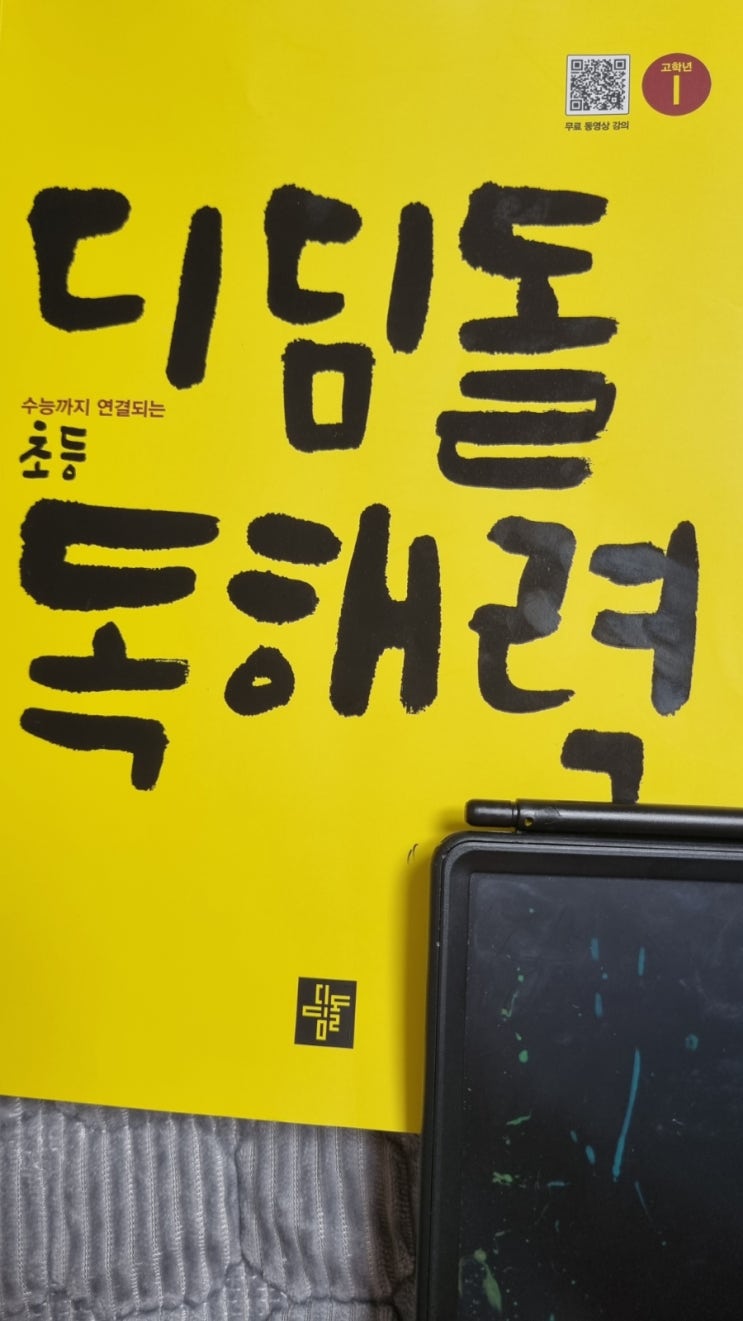 고학년
I
무료 동영상 강의
디딤돌
수능까지 연결되는
초등
독해력
디딤돌